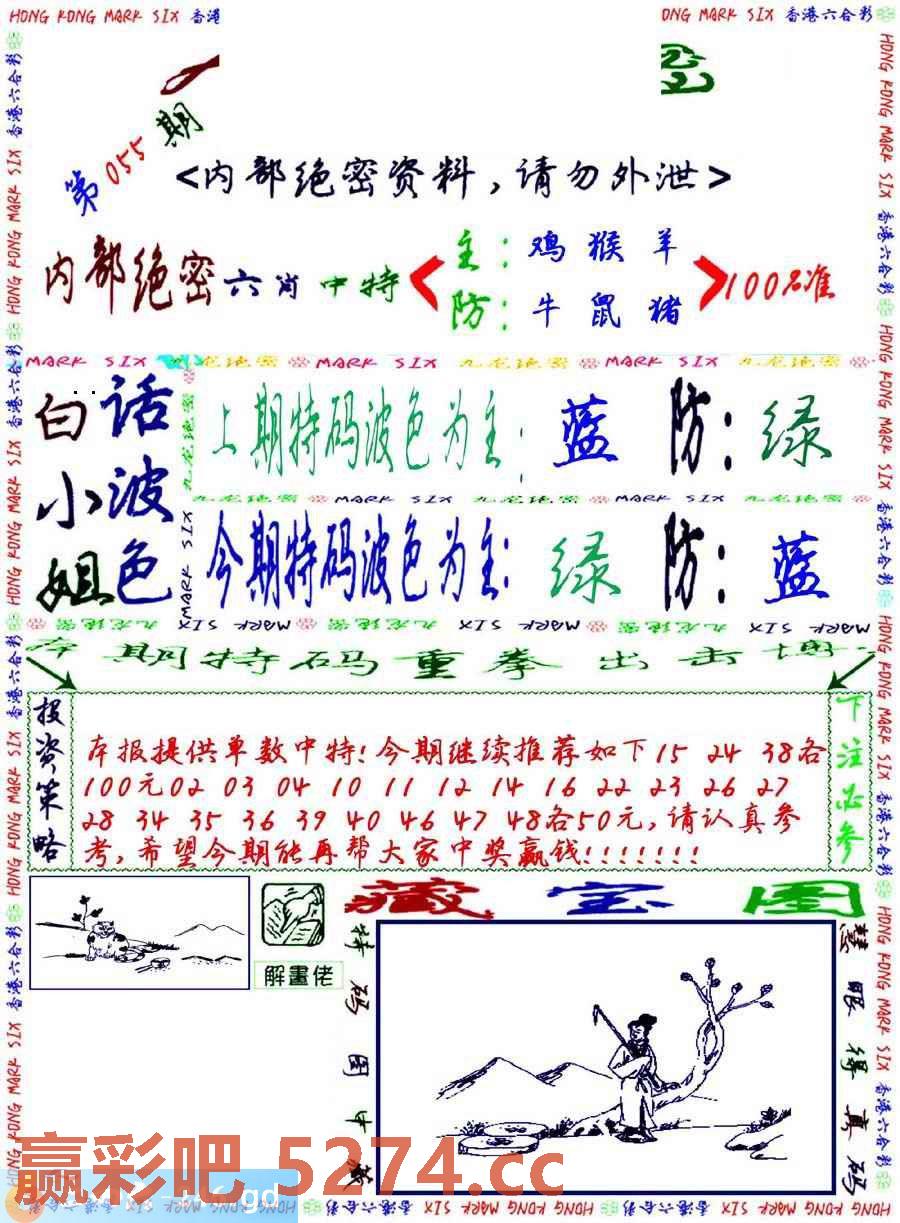 HONG KONG MARK SIX 香港
ONG MARK SIX 香港六合彩
第055期
<内部绝密资料,请勿外泄>
内部绝密六肖中特
主:鸡猴羊
防:牛鼠猪
100%准
MARK SIX 九龙绝密 MARK SIX 九龙绝密 MARK SIX 九龙绝密
白话
小波
姐色
上期特码波色为主:蓝 防:绿
九龙绝密 MARK SIX 九龙绝密 MARK SIX 九龙绝密
今期特码波色为主:绿 防:蓝
九龙绝密 MARK SIX 九龙绝密 MARK SIX 九龙绝密 MARK SIX
本期特码重拳出击博
投资策略
本报提供单数中特!今期继续推荐如下15 24 38各
100元02 03 04 10 11 12 14 16 22 23 26 27
28 34 35 36 39 40 46 47 48各50元,请认真参
考,希望今期能再帮大家中奖赢钱!!!!!!!
下注必参
藏宝图
解畫佬
特码图中藏
慧眼得真码
赢彩吧 5274.cc
HONG KONG MARK SIX 香港六合彩